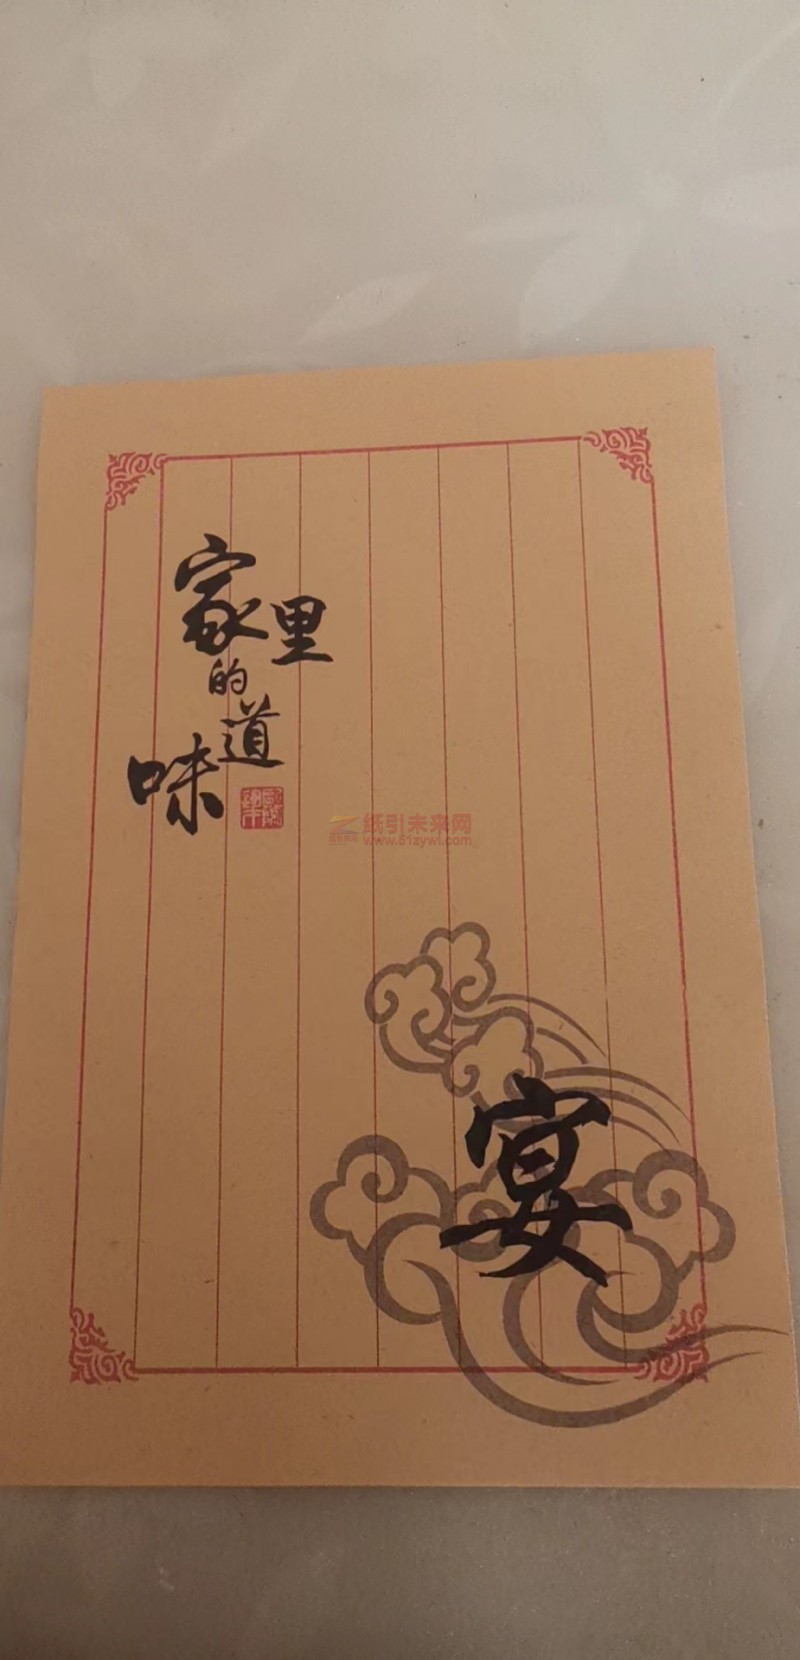 家里
的
道
味
纸引未来网
www.51zywl.com
宴